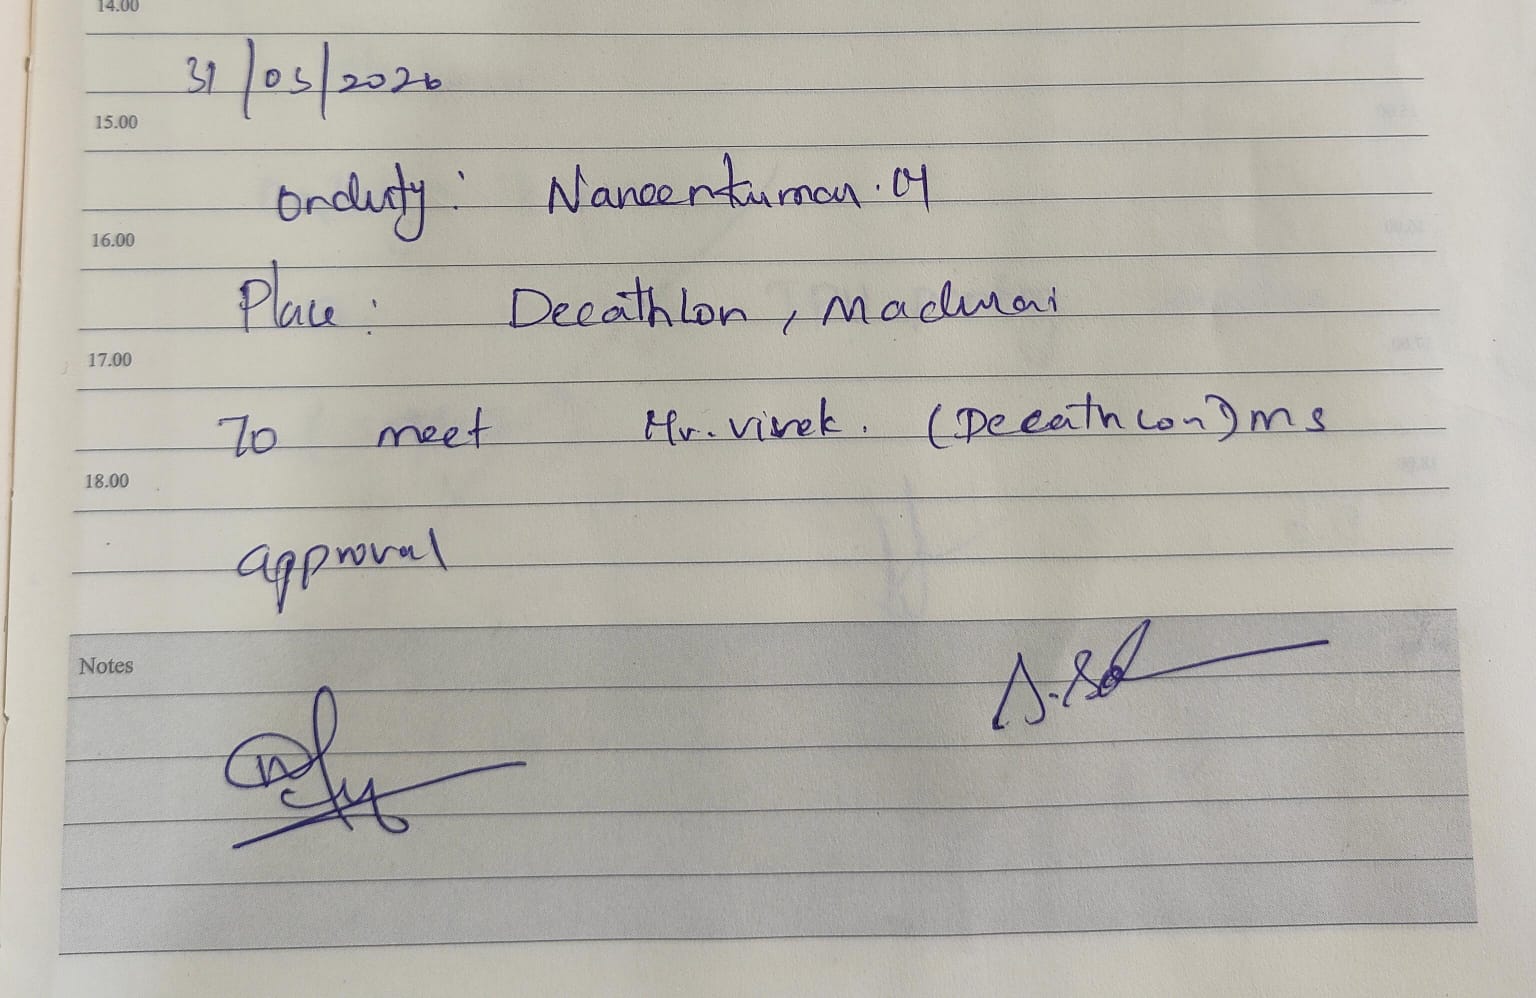 14.00
31/03/2026
15.00
onduty : Naneenkumar . M
16.00
Place : Decathlon , Madurai
17.00
To meet Mr. Vivek . (Decathlon) ms
18.00
approval
Notes